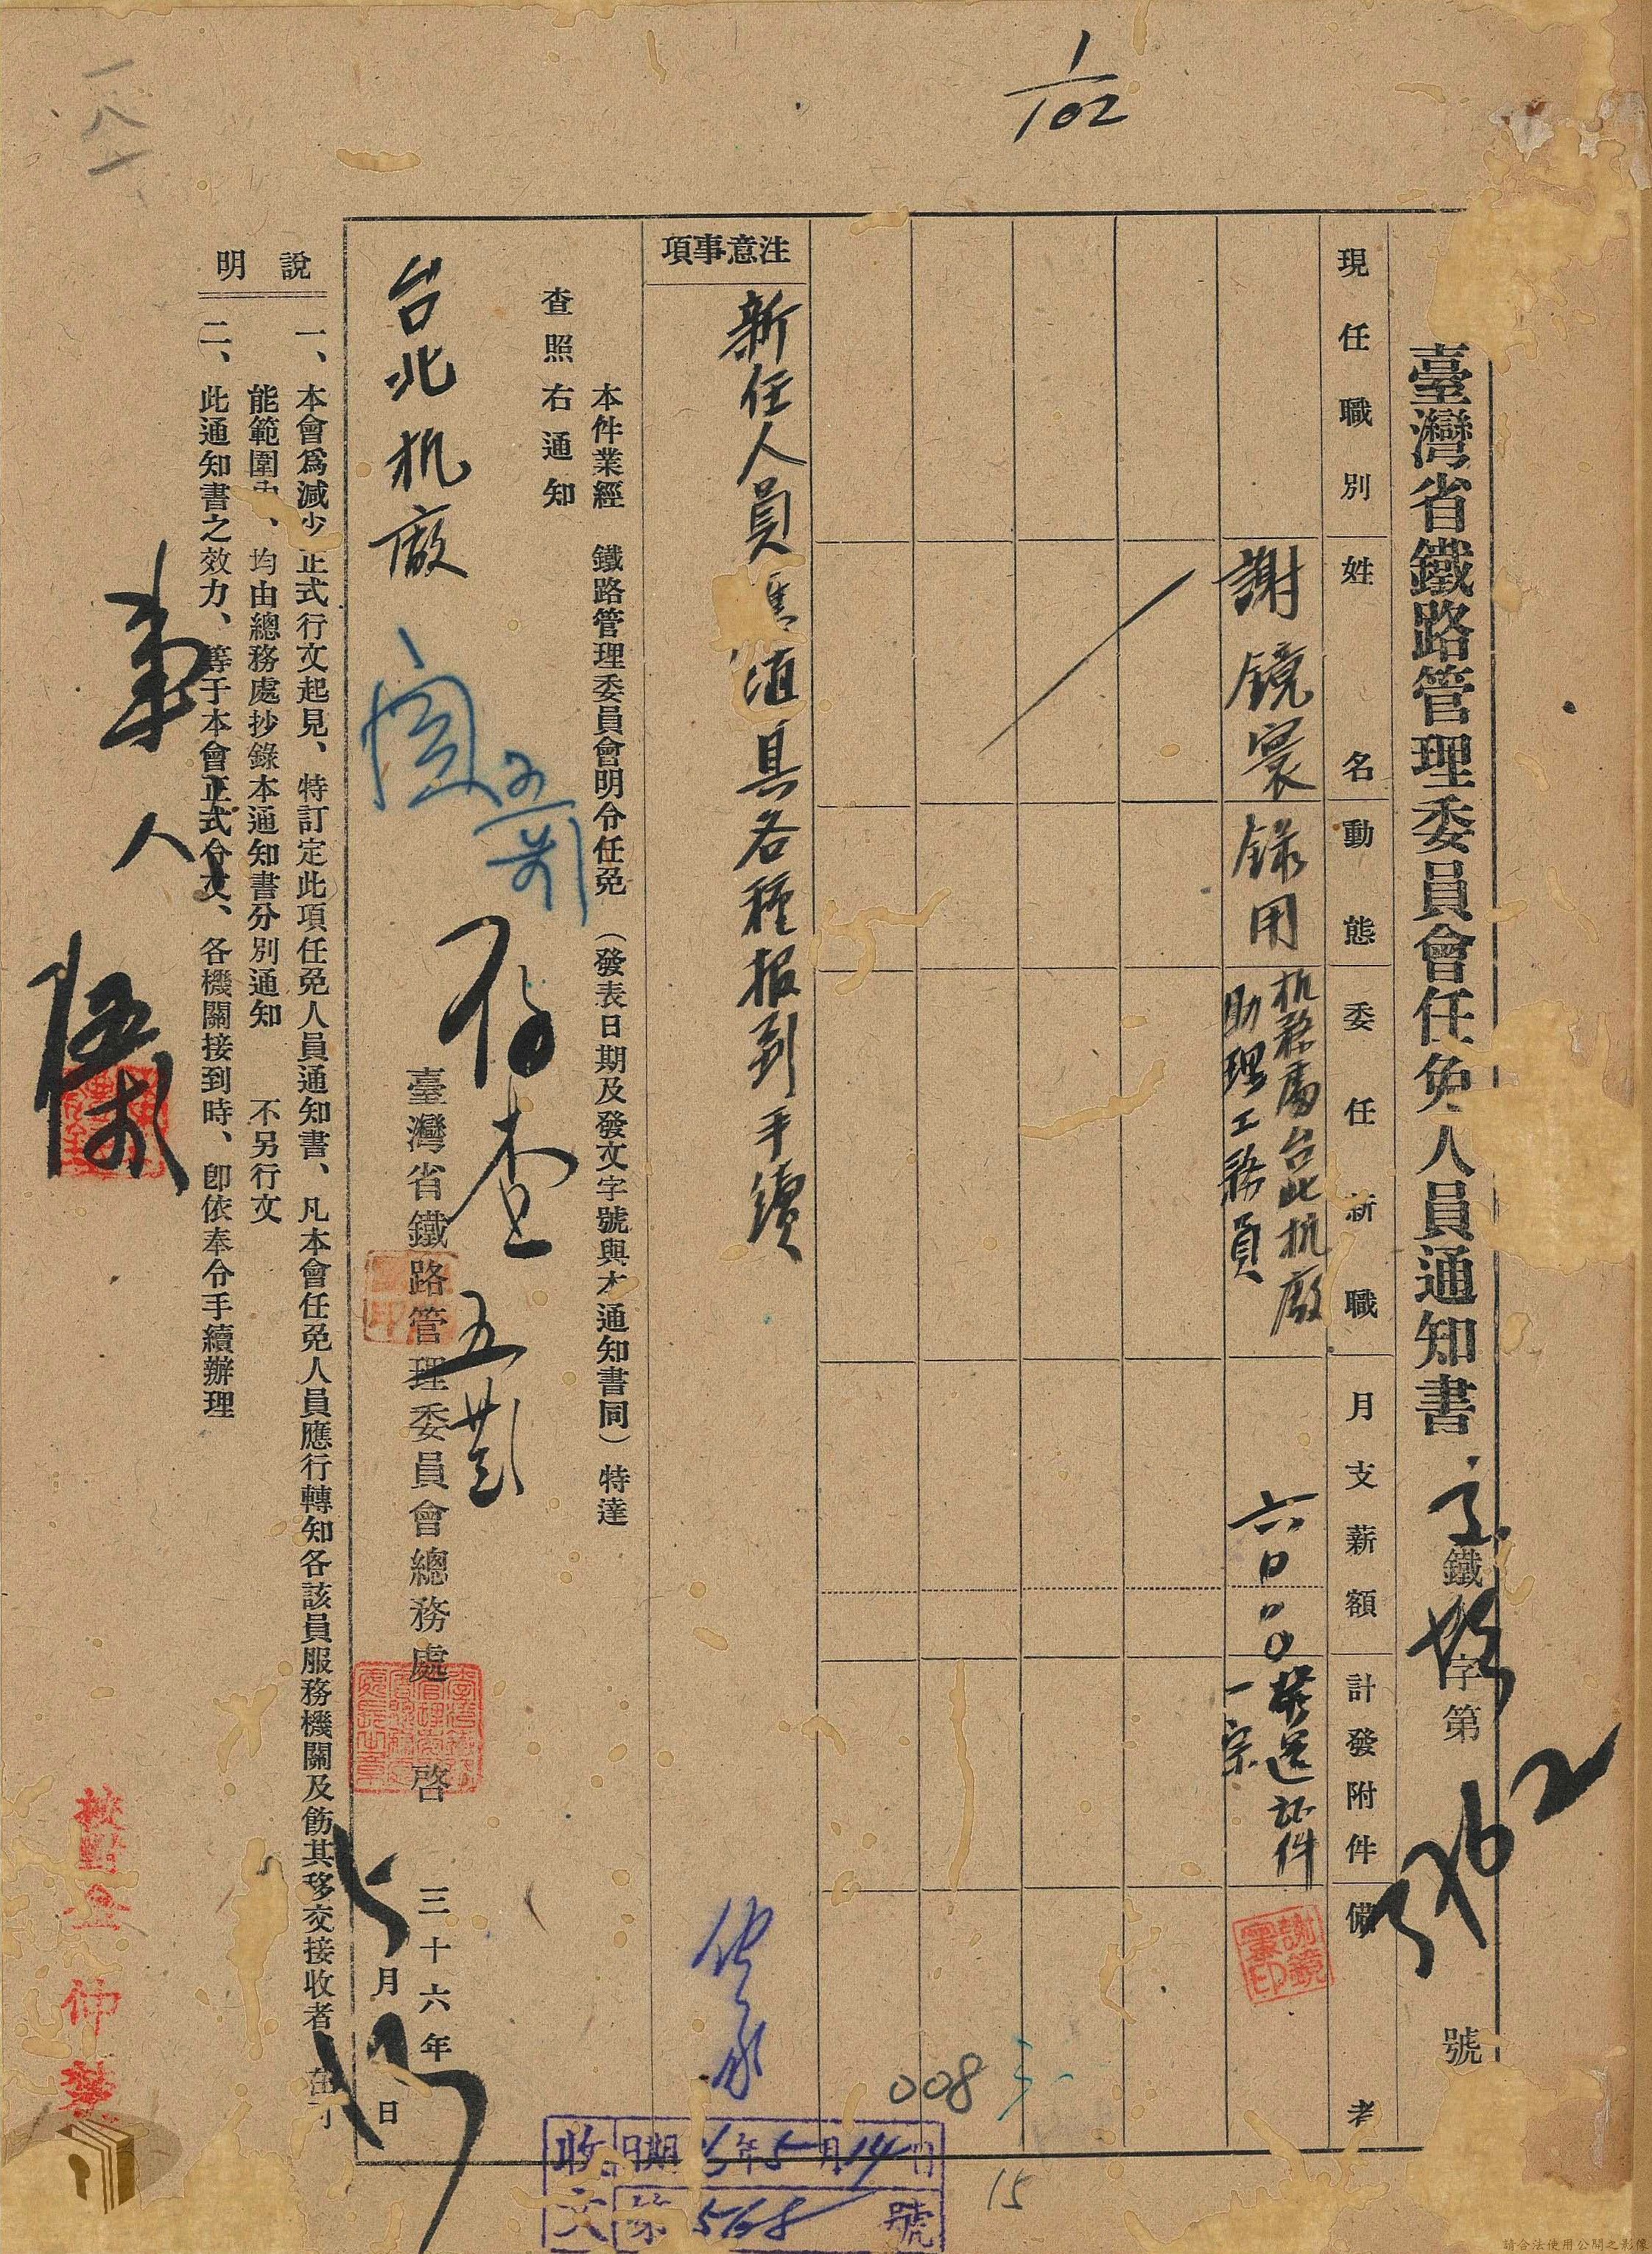 1/102
一八一
臺灣省鐵路管理委員會任免人員通知書
鐵 字第 3762 號
現任職別 姓名 動態 委任新職 月支薪額 計發附件 備考
謝鏡寰 錄用 机務處台北机廠
助理工務員 六〇.〇〇 發還証件
一宗
謝鏡寰印
注意事項
新任人員 填具各種報到手續
本件業經 鐵路管理委員會明令任免(發表日期及發文字號與本通知書同)特達
查照右通知
台北机廠
存查
臺灣省鐵路管理委員會總務處 啓
三十六年
5月13日
說明
一、本會爲減少正式行文起見、特訂定此項任免人員通知書、凡本會任免人員應行轉知各該員服務機關及飭其移交接收者
能範圍內、均由總務處抄錄本通知書分別通知 不另行文
二、此通知書之效力、等于本會正式令文、各機關接到時、卽依奉令手續辦理
人
校對
仲
008
15
收文 日期 年5月14日
第568號
請合法使用公開之影像